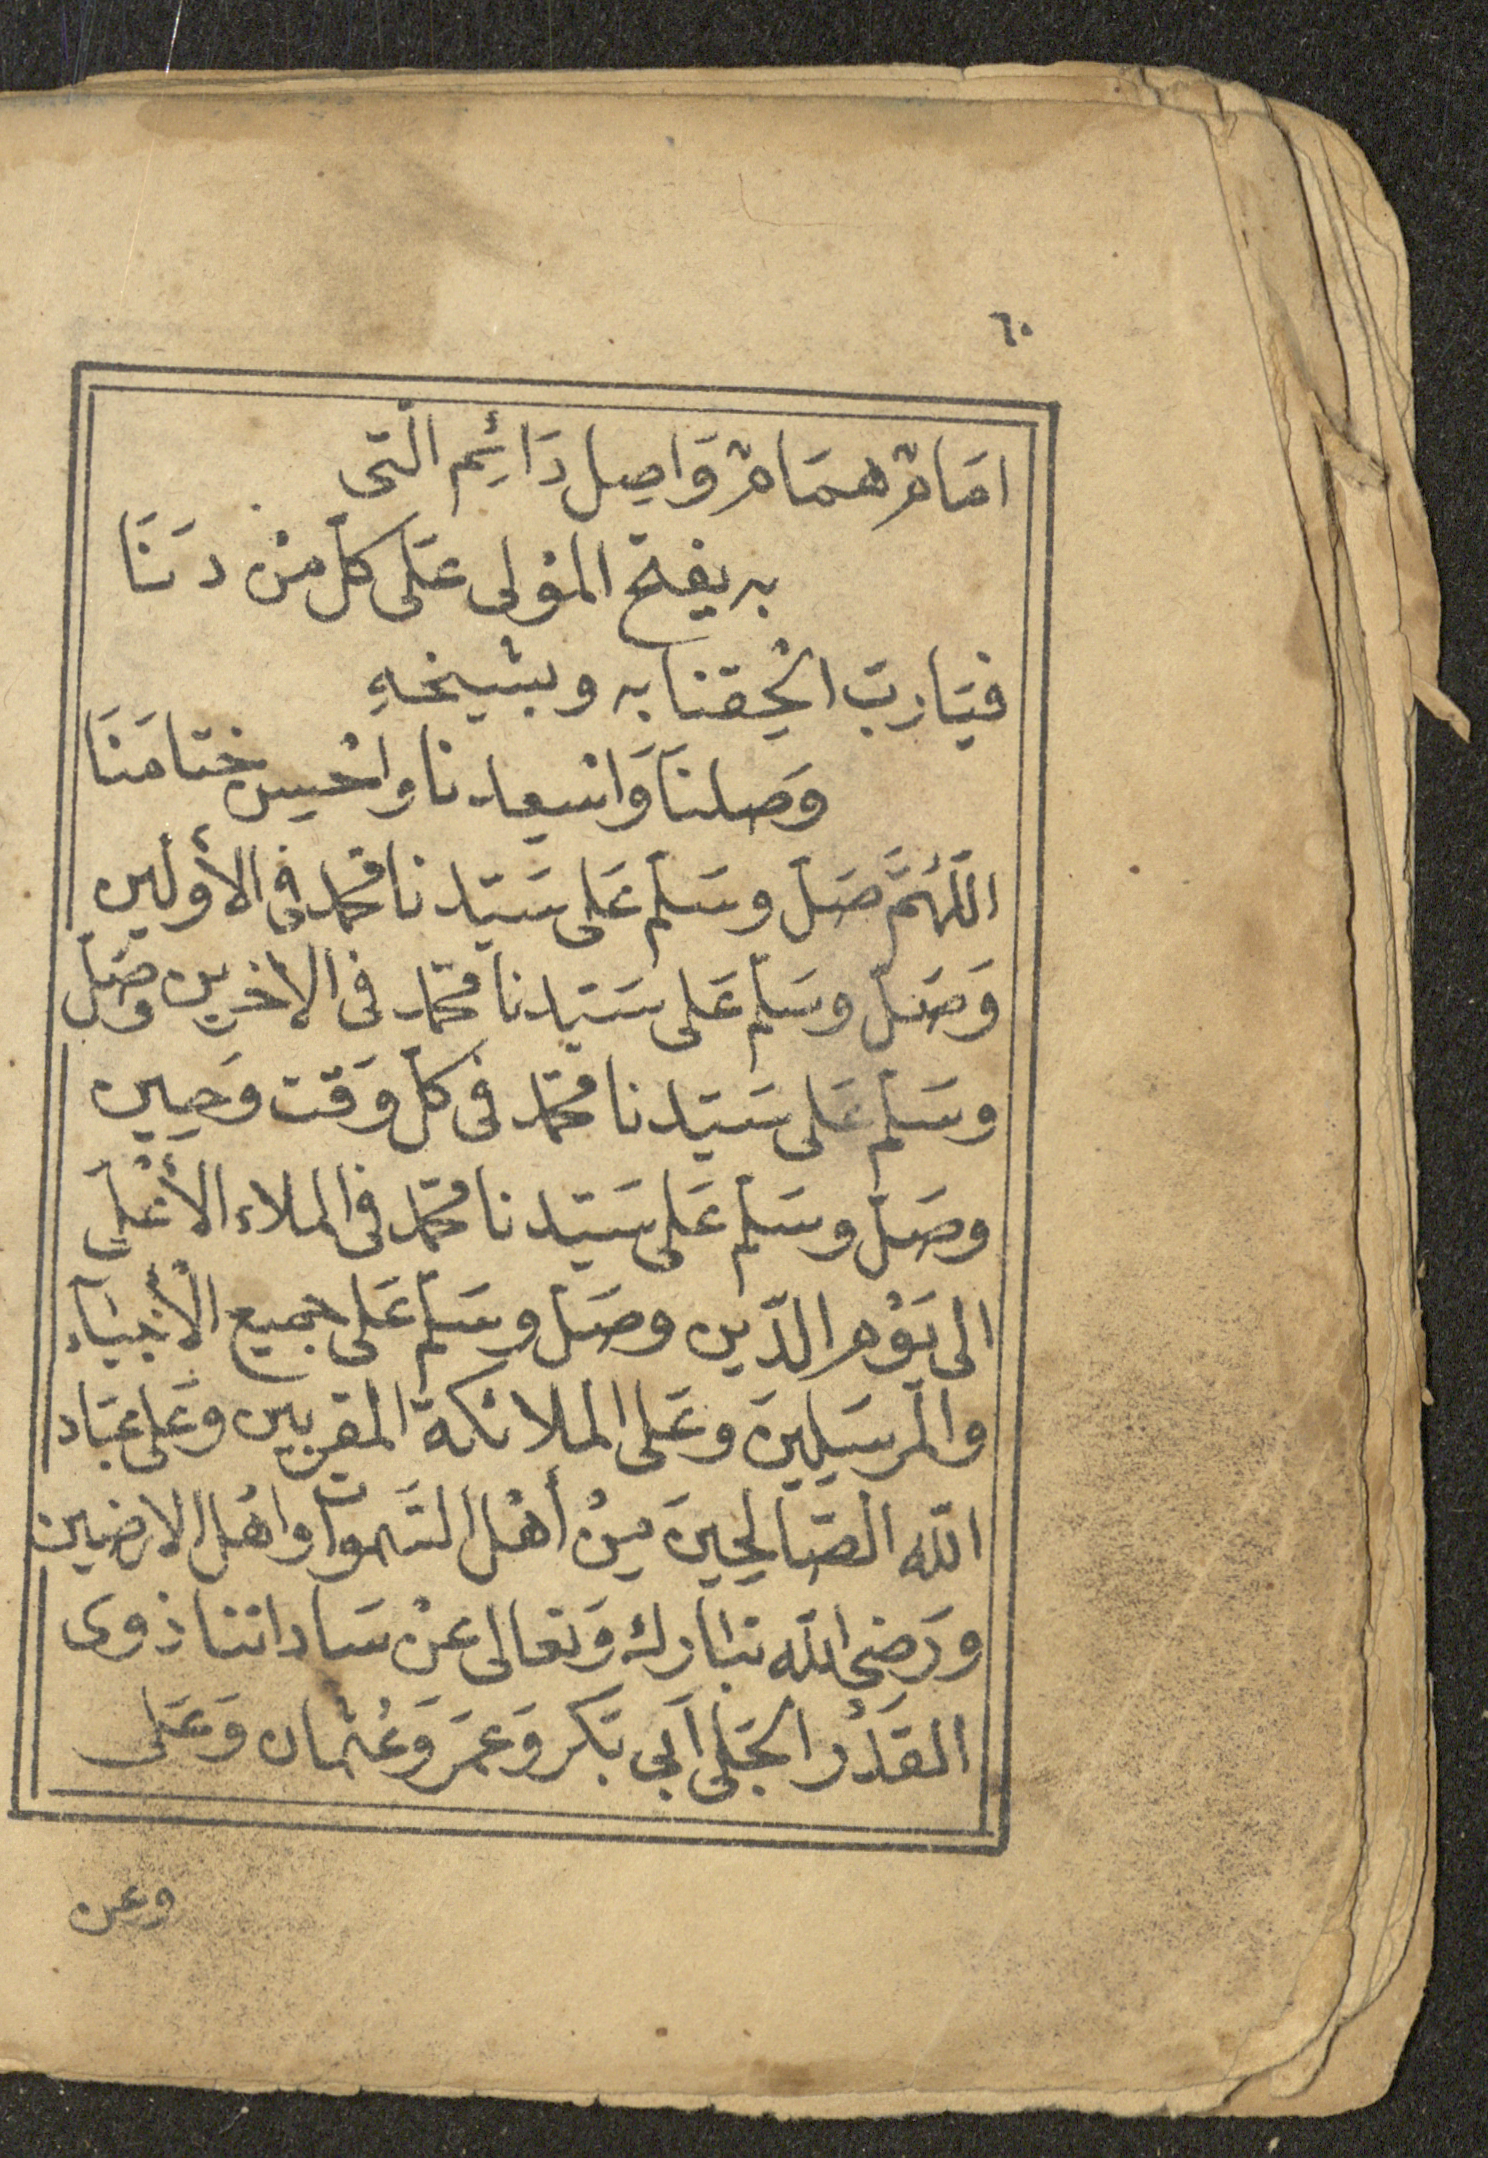 ٦٠
امَامْ همَامْ وَاصِل دَائِم الّتى
به يفتح المؤلى عَلى كلّ منْ دَنَا
فيَاربّ الْحِقنا به وبشيخهِ
وَصلنَا وَاسْعِدنا واحْسِن ختامَنَا
اللّهُمَّ صَلّ وسَلّم عَلى سَيّدنا محمّد فى الأوّلين
وَصَلّ وسَلّم عَلى سَيّدنا محمّد فى الاخرين وصَلّ
وسَلّم عَلى سَيّدنا محمّد فى كلّ وَقت وَحِين
وصَلّ وسَلّم عَلى سَيّدنا محمّد فى الملاء الأعْلَى
الى يَوْم الدّين وصَلّ وسَلّم عَلى جميع الْأنبيَآء
والمرسَلِينَ وعَلى الملائكة المقرّبين وعَلى عبَاد
الله الصّالحِينَ مِنْ أهْل السَّموات واهْل الارضين
ورَضى الله تبارك وَتعالى عنْ سَاداتنا ذوى
القَدْر الجَلى اَبى بَكر وَعمَر وَعُثْمان وَعَلى
وعن